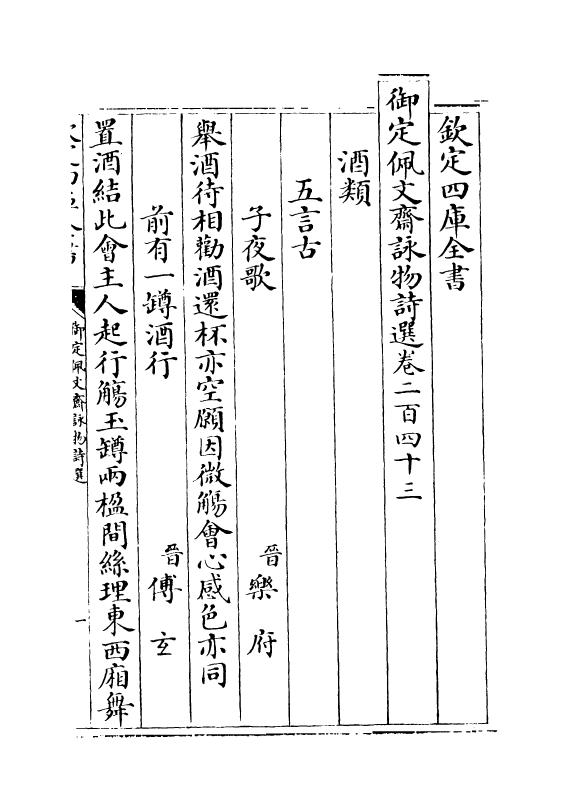 欽定四庫全書
御定佩文齋詠物詩選卷二百四十三
酒類
五言古
子夜歌 晉樂府
舉酒待相勸酒還杯亦空願因微觴會心感色亦同
前有一罇酒行 晉傅玄
置酒結此會主人起行觴玉罇兩楹間絲理東西廂舞
御定佩文齋詠物詩選
一